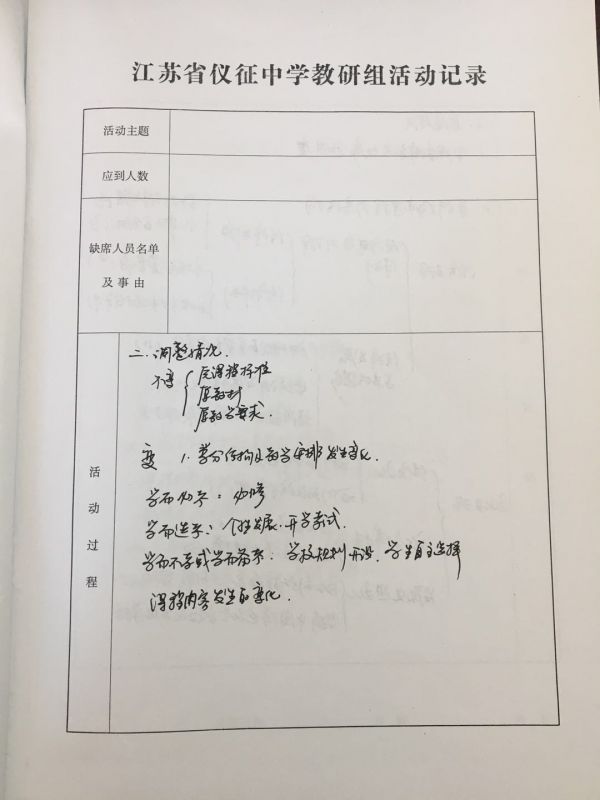 江苏省仪征中学教研组活动记录
活动主题
应到人数
缺席人员名单
及事由
活动过程
二.调整情况.
不变
原课程标准
原教材
原教学要求.
变 1.学分结构及教学安排发生变化.
学而必考:必修
学而选考:个性发展.升学考试.
学而不考或学而备考:学校规划开设.学生自主选择
课程内容发生的变化.